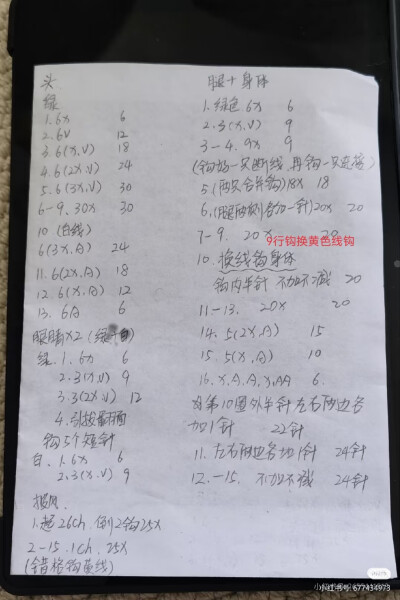 头
绿
1. 6x 6
2. 6v 12
3. 6(x.v) 18
4. 6(2x.v) 24
5. 6(3x.v) 30
6-9. 30x 30
10 (白线)
6(3x.A) 24
11. 6(2x.A) 18
12. 6(x.A) 12
13. 6A 6
眼睛x2
绿. 1. 6x 6
2. 3(x.v) 9
3. 3(2x.v) 12
4. 引拔
钩5个短针
白. 1. 6x 6
2. 3(x.v) 9
披风.
1. 起26ch. 倒2钩25x
2-15. 1ch. 25x
(错格钩黄线)
腿+身体
1. 绿色6x 6
2. 3(x.v) 9
3-4. 9x 9
(钩好一只断线.再钩一只连接)
5. (两只合并钩)18x 18
6. (腿两侧各加一针)20x 20
7-9. 20x 20
9行钩换黄色线钩
10. 换线钩身体
钩内半针 不加不减 20
11-13. 20x 20
14. 5(2x.A) 15
15. 5(x.A) 10
16. x.A.A.x.AA 6
第10圈外半针左右两边各
加1针 22针
11. 左右两边各加1针 24针
12.-15. 不加不减 24针
小红书号: 677434973